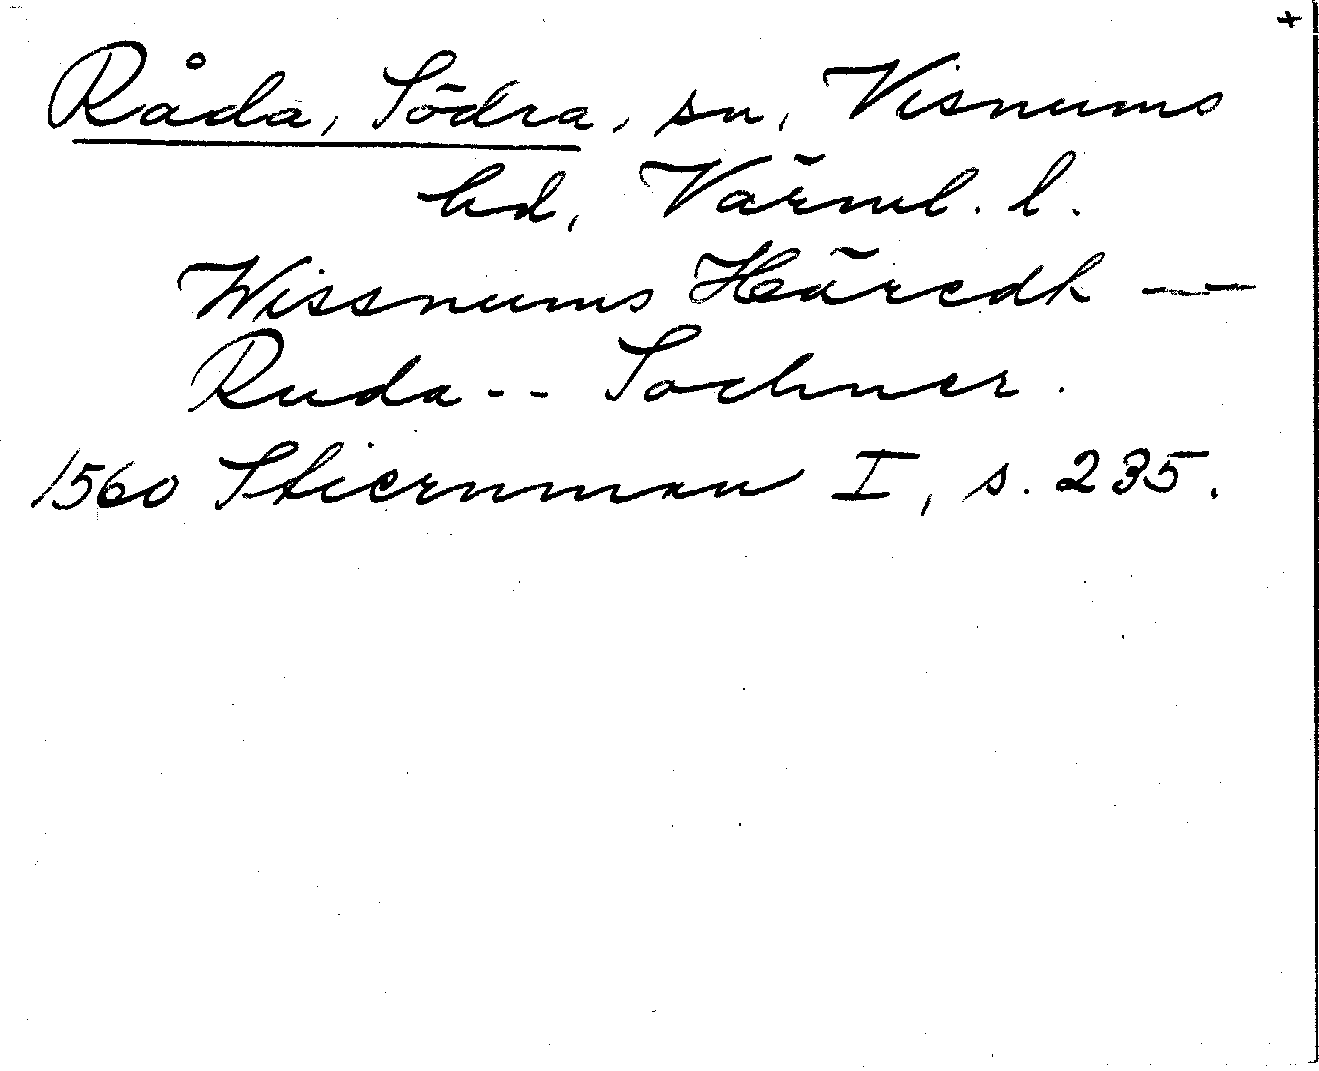 +
Råda, Södra, sn, Visnums
hd, Värml. l.
Wissnums Häredh — —
Ruda - - Sochner.
1560 Stiernman I, s. 235.